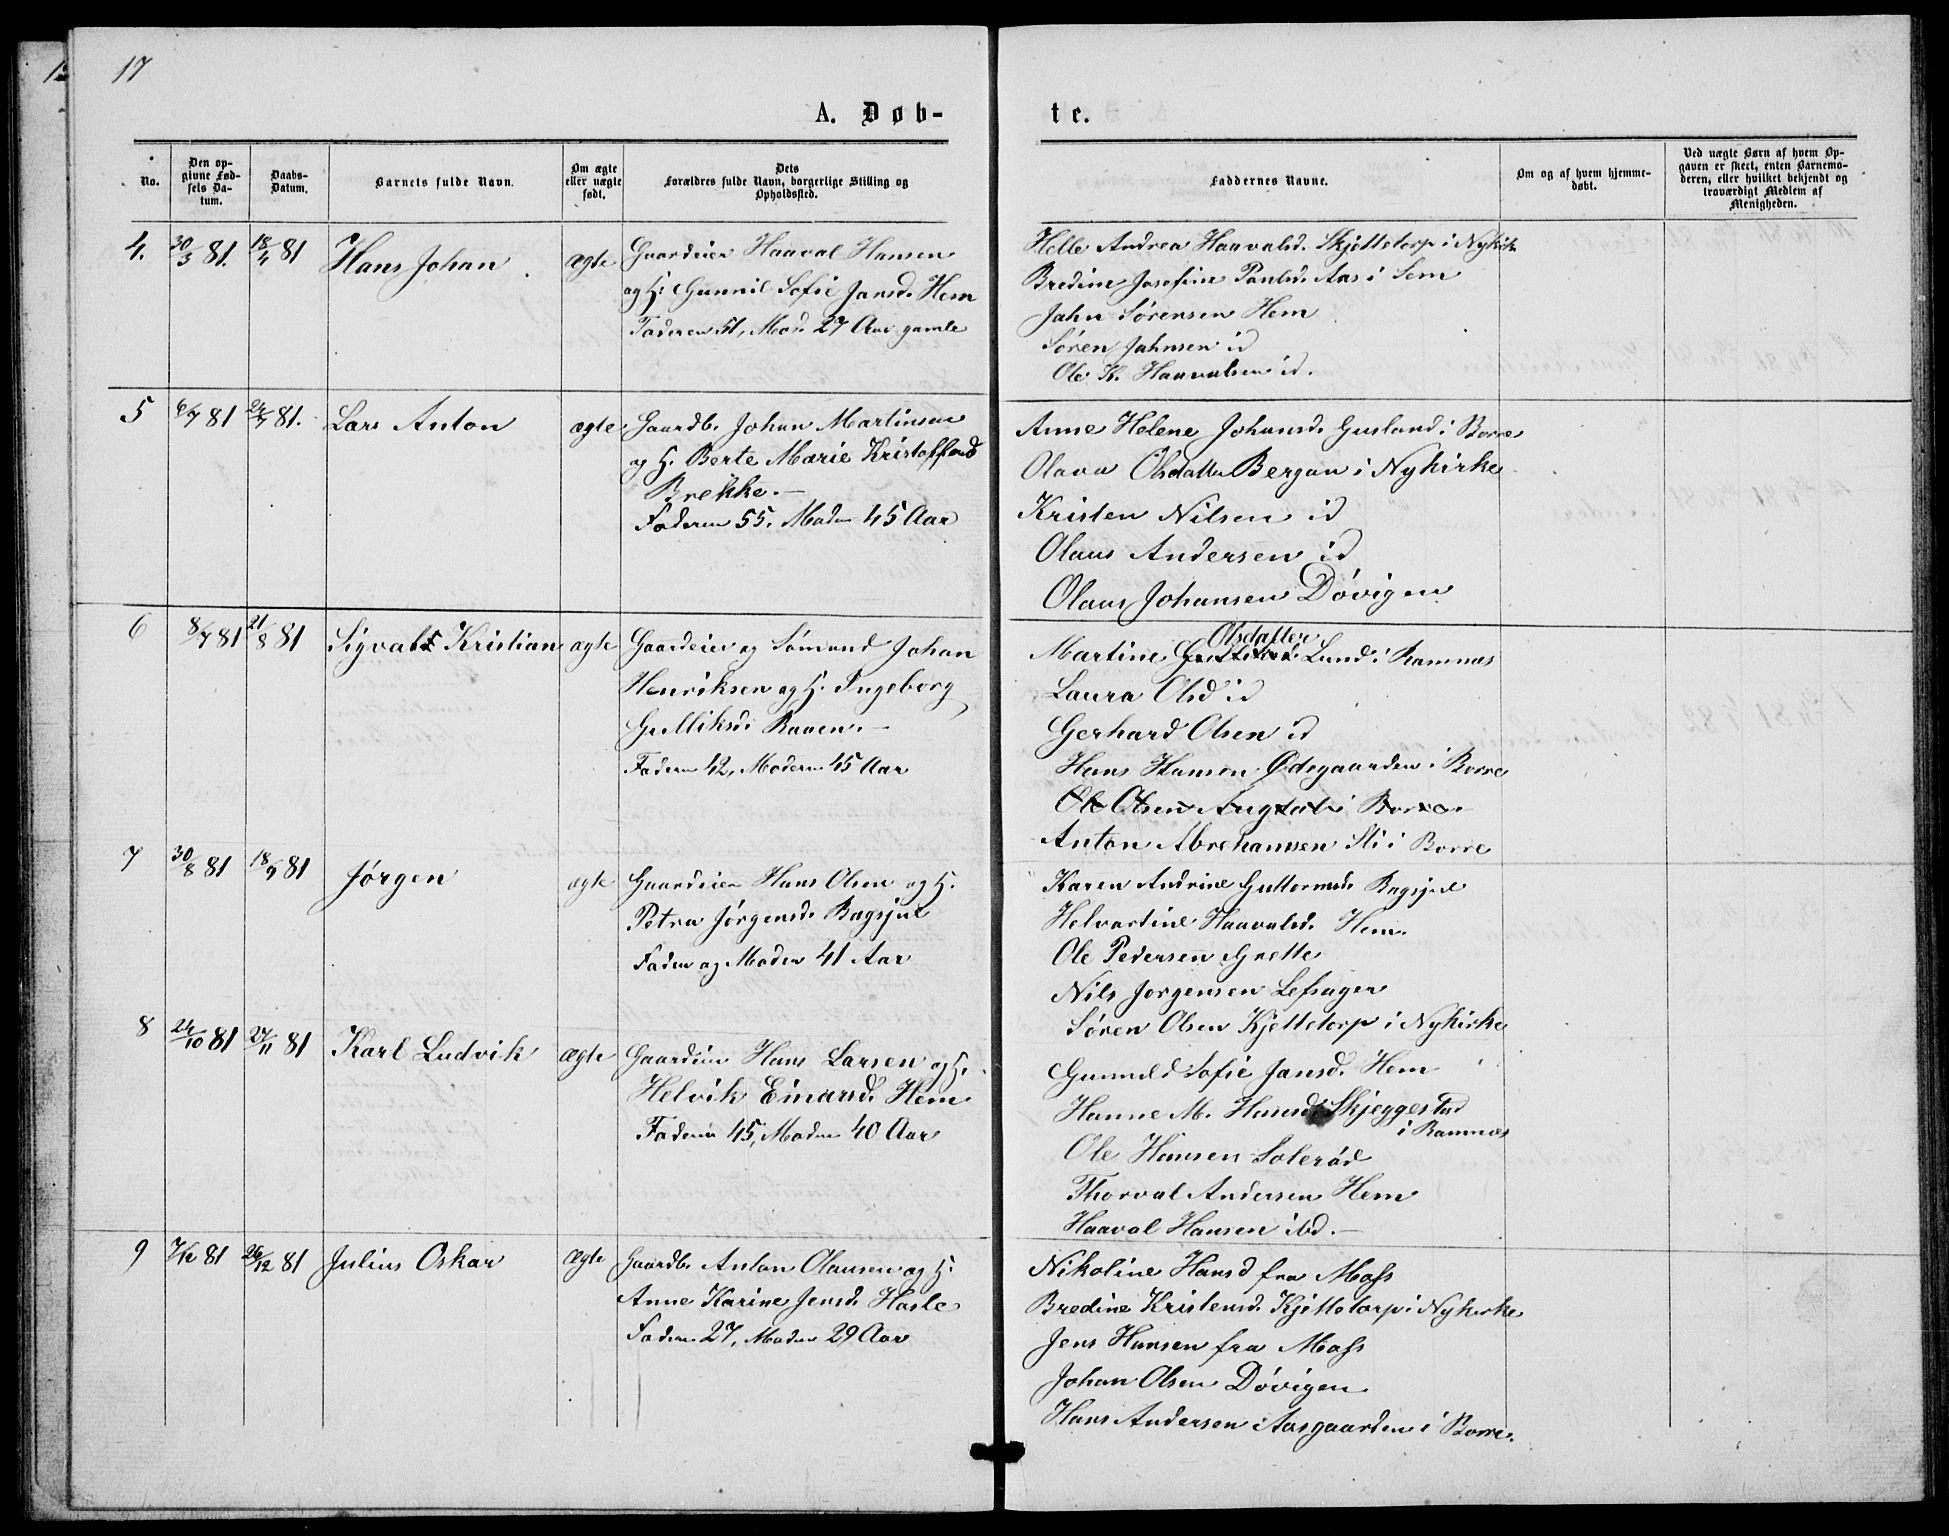 17
A. Døb-
te.
No.
Den op-
givne Fød-
sels Da-
tum.
Daabs-
Datum.
Barnets fulde Navn.
Om ægte
eller uægte
født.
Dets
Forældres fulde Navn, borgerlige Stilling og
Opholdssted.
Faddernes Navne.
Om og af hvem hjemme-
døbt.
Ved uægte Børn af hvem Op-
gaven er skeet, enten Barnemo-
deren, eller hvilket bekjendt og
troværdigt Medlem af
Menigheden.
4. 30/3 81. 18/4 81 Hans Johan ægte Gaardeier Haaval Hansen
og H. Gunnil Sofie Jansd. Hem
Faderen 51, Mod. 27 Aar gamle
Helle Andrea Haavalsd. Skjettetorp i Nykirk
Bredine Josefine Paulsd. Aas i Sem
Jahn Sørensen Hem
Søren Jahnsen id
Ole K. Haavalsen id.
5 6/7 81 24/7 81. Lars Anton ægte Gaardb. Johan Martinsen
og H. Berte Marie Kristoffersd
Brekke.—
Faderen 55. Moden 45 Aar
Anne Helene Johansd. Gusland i Borre
Olava Olsdatter Bergan i Nykirke
Kristen Nilsen id
Olaus Andersen id
Olaus Johansen Døvigen
6 8/7 81 21/8 81 Sigvald Kristian ægte Gaardeier og Sømand Johan
Henriksen og H. Ingeborg
Gulliksd. Raaen.—
Faderen 42, Moderen 45 Aar
Olsdatter
Martine Lund i Ramnæs
Laura Olsd id
Gerhard Olsen id
Hans Hansen Ødegaarden i Borre
Ole Olsen i Borre
Anton Abrahamsen Sti i Borre
7 30/8 81 18/9 81 Jørgen ægte Gaardeier Hans Olsen og H.
Petra Jørgensd. Bagsjul
Fader og Moder 41 Aar
Karen Andrine Guttormsd. Bagsjul
Helvartine Haavalsd. Hem.
Ole Pedersen Grette
Nils Jørgensen Lefsager
Søren Olsen Kjettetorp i Nykirke
8 24/10 81 27/11 81 Karl Ludvik ægte Gaardeier Hans Larsen og H.
Helvik Einarsd. Hem
Faderen 45, Moderen 40 Aar
Gunnild Sofie Jansd. Hem
Hanne M. Hansd. Skjeggestad
i Ramnæs
Ole Hansen Solerød
Thorval Andersen Hem
Haaval Hansen ibd.—
9 7/12 81 26/12 81 Julius Oskar ægte Gaardb. Anton Olausen og H.
Anne Karine Jensd. Hasle
Faderen 27, Moder 29 Aar
Nikoline Hansd fra Moss
Bredine Kristensd. Kjettetorp i Nykirke
Jens Hansen fra Moss
Johan Olsen Døvigen
Hans Andersen Aasgaarden i Borre.